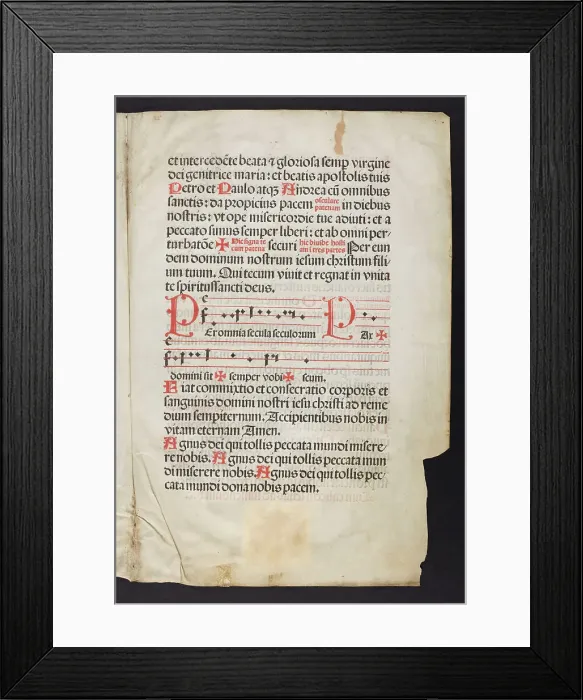 et intercedẽte beata ⁊ gloriosa semp virgine
dei genitrice maria: et beatis apostolis tuis
Petro et Paulo atqꝫ Andrea cũ omnibus
sanctis: da propicius pacem osculare patenam in diebus
nostris: vt ope misericordie tue adiuti: et a
peccato simus semper liberi: et ab omni per-
turbatõe ✠ Hic signa te cum patena securi hic diuide hosti am ĩ tres partes Per eun
dem dominum nostrum iesum christum fili
um tuum. Qui tecum viuit et regnat in vnita
te spiritussancti deus.
Per omnia secula seculorum P Ax ✠
domini sit ✠ semper vobi ✠ scum.
Fiat commixtio et consecratio corporis et
sanguinis domini nostri iesu christi ad reme
dium sempiternum. Accipientibus nobis in
vitam eternam Amen.
Agnus dei qui tollis peccata mundi misere-
re nobis. Agnus dei qui tollis peccata mun
di miserere nobis. Agnus dei qui tollis pec-
cata mundi dona nobis pacem.